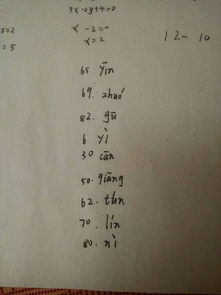 3x-2y+4=0
x-2=0
x=2
=5
12-10
65 yīn
69. zhuó
82. gū
6 yì
30 cān
50. qiāng
62. tún
70. lín
80. nì